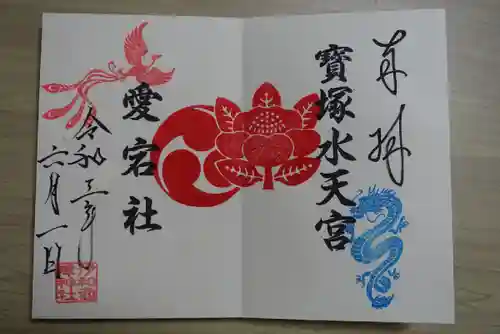 奉拝
寶塚水天宮
愛宕社
令和三年
六月一日